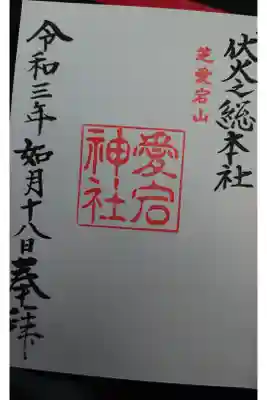 伏火之総本社
芝愛宕山
愛宕
神社
令和三年如月十八日奉拝